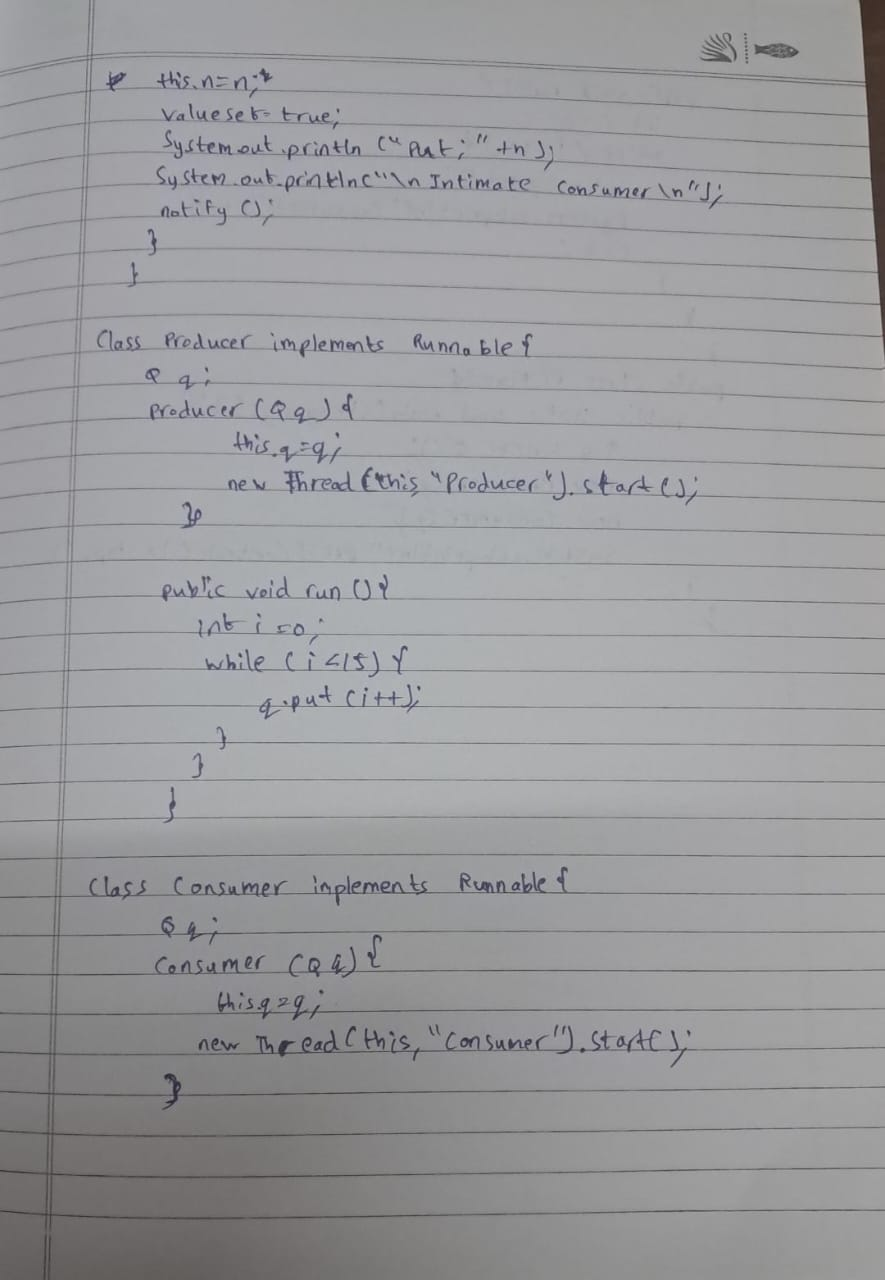 this.n=n;
valueset= true;
System.out.println ("Put;" +n);
System.out.println("\n Intimate Consumer \n");
notify ();
}
}
Class Producer implements Runnable {
Q q;
Producer (Q q) {
this.q=q;
new Thread (this, "Producer"). start ();
}
public void run () {
int i =0;
while (i <15) {
q.put (i++);
}
}
}
Class Consumer implements Runnable {
Q q;
Consumer (Q q) {
this.q=q;
new Thread (this, "Consumer"). start();
}